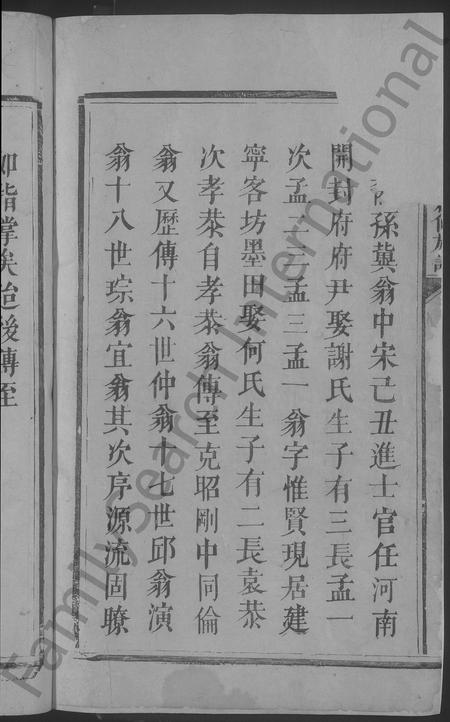 孫冀翁中宋己丑進士官任河南
開封府府尹娶謝氏生子有三長孟一
次孟二三孟三孟一翁字惟賢現居建
寧客坊墨田娶何氏生子有二長袁恭
次孝恭自孝恭翁傳至克昭剛中同倫
翁又歷傳十六世仲翁十七世邱翁演
翁十八世琮翁宜翁其次序源流固瞭
如指掌矣迨後傳至
Family Search International